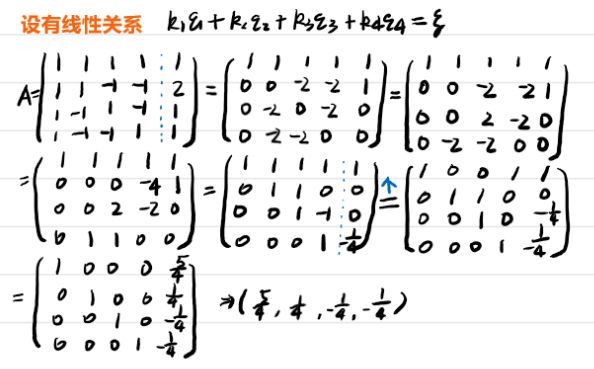 设有线性关系 k₁ε₁+k₂ε₂+k₃ε₃+k₄ε₄=ξ
A=(1 1 1 1 1; 1 1 -1 -1 2; 1 -1 1 -1 1; 1 -1 -1 1 1) = (1 1 1 1 1; 0 0 -2 -2 1; 0 -2 0 -2 0; 0 -2 -2 0 0) = (1 1 1 1 1; 0 0 -2 -2 1; 0 0 2 -2 0; 0 -2 -2 0 0)
= (1 1 1 1 1; 0 0 0 -4 1; 0 0 2 -2 0; 0 1 1 0 0) = (1 1 1 1 1; 0 1 1 0 0; 0 0 1 -1 0; 0 0 0 1 -1/4) ↑= (1 0 0 1 1; 0 1 1 0 0; 0 0 1 0 -1/4; 0 0 0 1 -1/4)
= (1 0 0 0 5/4; 0 1 0 0 1/4; 0 0 1 0 -1/4; 0 0 0 1 -1/4) ⇒(5/4, 1/4, -1/4, -1/4)